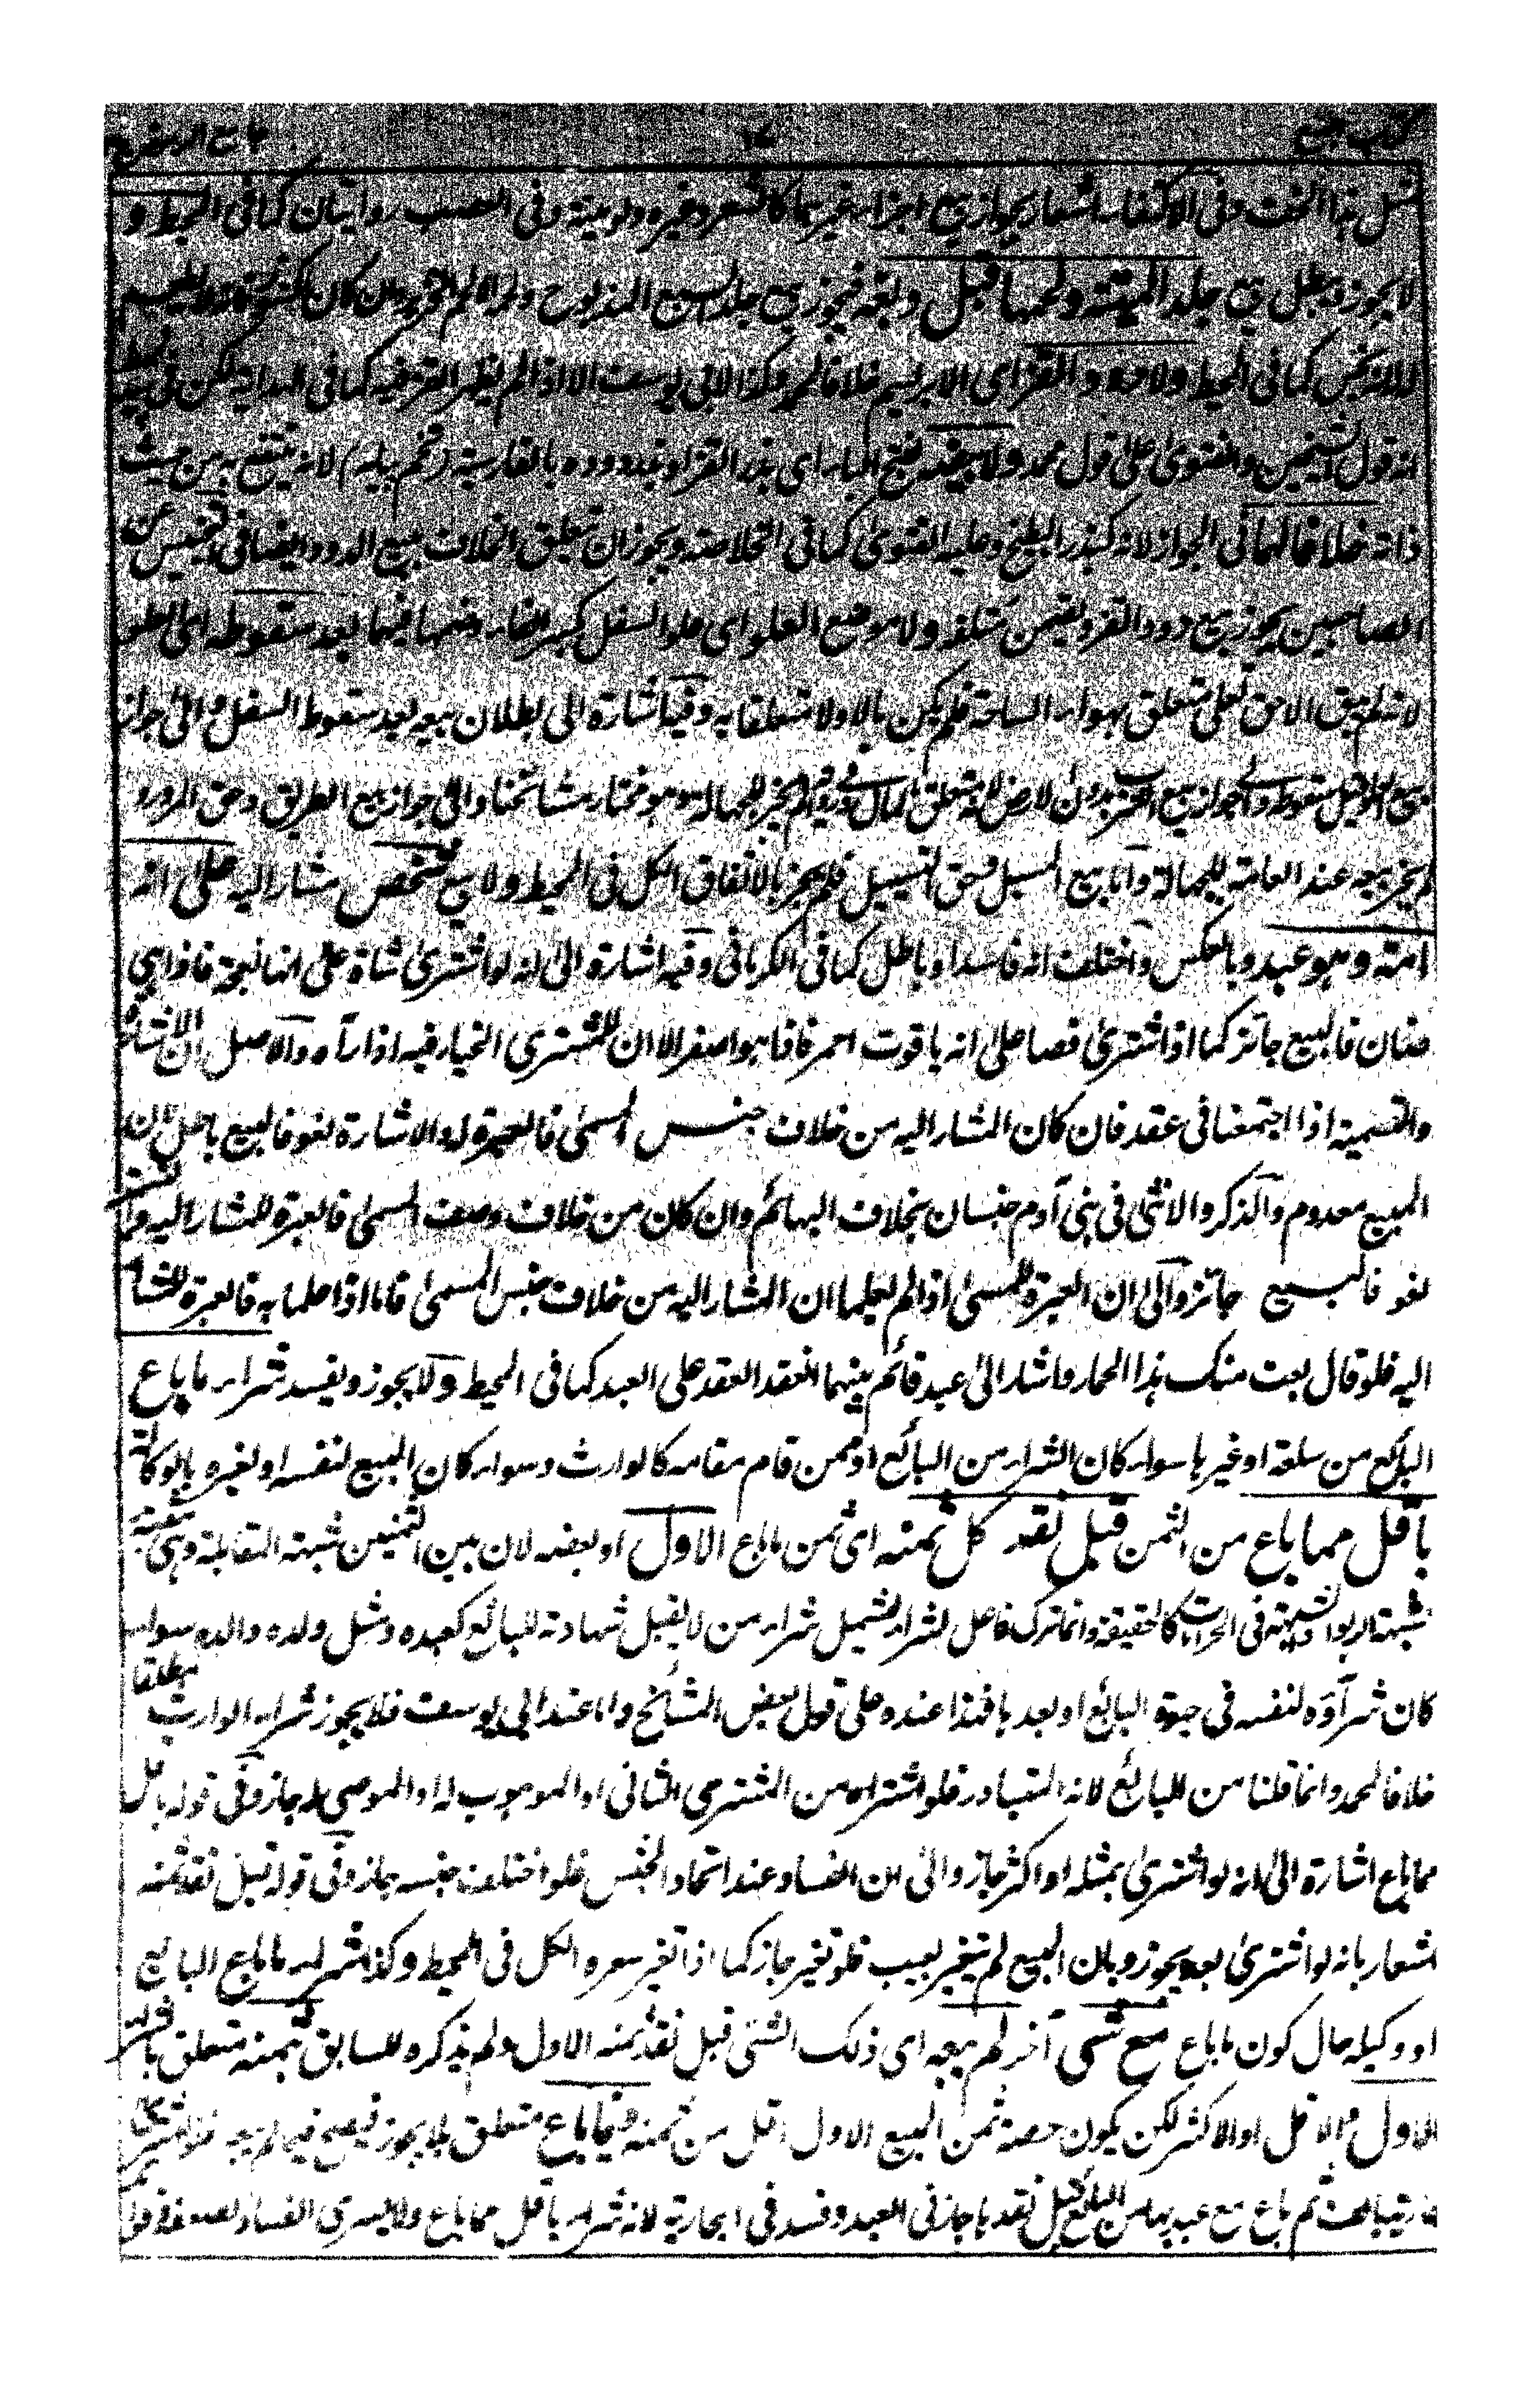 كتاب البيع
جامع الرموز
مثل هذا البحث وفى الاكتفاء اشعار بجواز بيع اجزاء غيرهما كالشعر وغيره ولو ميتة وفى العصب روايتان كما فى المحيط و
لا يجوز وبطل بيع جلد الميتة ولحمها قبل دبغه فيجوز بيع جلد السبع المذبوح
لانه نجس كما فى المحيط ولا دود القز اى الابريسم خلافا لمحمد وكذا لابى يوسف الا اذا لم يظهر القز فيه كما فى الهداية لكن فى
انه قول الشيخين والفتوى على قول محمد ولا بيضه بفتح الباء اى بذر القز او بذر دوده بالفارسية (تخم پيله) لانه ينتفع به من حيث
ذاته خلافا لهما فى الجواز لانه كبذر البطيخ وعليه الفتوى كما فى الخلاصة ويجوز ان يتعلق الخلاف ببيع الدود ايضا فى التجنيس عن
الصاحبين يجوز بيع دود القز ويضمن متلفه ولا موضع العلو اى علو السفل بكسر الفاء وضمها فيما بعد سقوطه اى العلو
لانه لم يبق الا حق تعلى متعلق بهواء الساحة فلم يكن مالا ولا متعلقا به وفيه اشارة الى بطلان بيعه بعد سقوط السفل والى جواز
بيع العلو قبل سقوطه والى جواز بيع الشرب بدون الارض لانه متعلق بالمال وفى رواية لم يجز للجهالة وهو مختار مشائخنا والى جواز بيع الطريق وحق المرور و
لم يجز بيعه عند العامة للجهالة واما بيع المسيل وحق التسييل فلم يجز بالاتفاق الكل فى المحيط ولا بيع شخص مشار اليه على انه
امة وهو عبد وبالعكس واختلف انه فاسد او باطل كما فى الكرمانى وفيه اشارة الى انه لو اشترى شاة على انها نعجة فاذا هى
ضان فالبيع جائز كما اذا اشترى فصا على انه ياقوت احمر فاذا هو اصفر الا ان للمشترى الخيار فيه اذا رآه والاصل ان الاشارة
والتسمية اذا اجتمعتا فى عقد فان كان المشار اليه من خلاف جنس المسمى فالعبرة له والاشارة لغو فالبيع باطل لان
المبيع معدوم والذكر والانثى فى بنى آدم جنسان بخلاف البهائم وان كان من خلاف وصف المسمى فالعبرة للمشار اليه والتسمية
لغو فالبيع جائز والى ان العبرة للمسمى اذا لم يعلما ان المشار اليه من خلاف جنس المسمى فاما اذا علما به فالعبرة للمشار
اليه فلو قال بعت منك هذا الحمار واشار الى عبد قائم بينهما انعقد العقد على العبد كما فى المحيط ولا يجوز ويفسد شراء ما باع
البائع من سلعة او غيرها سواء كان الشراء من البائع او ممن قام مقامه كالوارث وسواء كان البيع لنفسه او لغيره بالوكالة
باقل مما باع من الثمن قبل نقد كل ثمنه اى ثمن ما باع الاول او بعضه لان بين الثمنين شبهة المقابلة وهى شبهة
شبهة الربوا والشبهة فى الحرمات كالحقيقة وانما ترك فاعل الشراء ليشمل شراء من لا يقبل شهادته للبائع كعبده ومثل ولده والده سواء
كان شراؤه لنفسه فى حيوة البائع او بعدها فهذا عنده على قول بعض المشائخ واما عند ابى يوسف فلا يجوز شراء الوارث مطلقا
خلافا لمحمد وانما قلنا من البائع لانه المتبادر فلو اشتراه من المشترى الثانى او الموهوب له او الموصى له جاز وفى قوله باقل
مما باع اشارة الى انه لو اشترى بمثله او اكثر جاز والى ان الفساد عند اتحاد الجنس فلو اختلف جنسه جاز وفى قوله قبل نقد ثمنه
اشعار بانه لو اشترى بعده يجوز وبان المبيع لم يتغير بعيب فلو تغير جاز كما اذا تغير سعره الكل فى المحيط وكذا شراء ما باع البائع
او وكيله حال كون ما باع مع شىء آخر لم يبعه اى ذلك الشئ قبل نقد ثمنه الاول ولم يذكره للسابق بثمنه متعلق بالشراء
الاول والاقل او الاكثر لكن يكون حصة ثمن المبيع الاول اقل من ثمنه وفيما باع متعلق بلا يجوز فيصح فيما لم يبعه فلو اشترى
جارية بالف ثم باع مع عبد بها من البائع قبل نقدها جاز فى العبد وفسد فى الجارية لانه شراء باقل مما باع ولا يسرى الفساد لضعفه